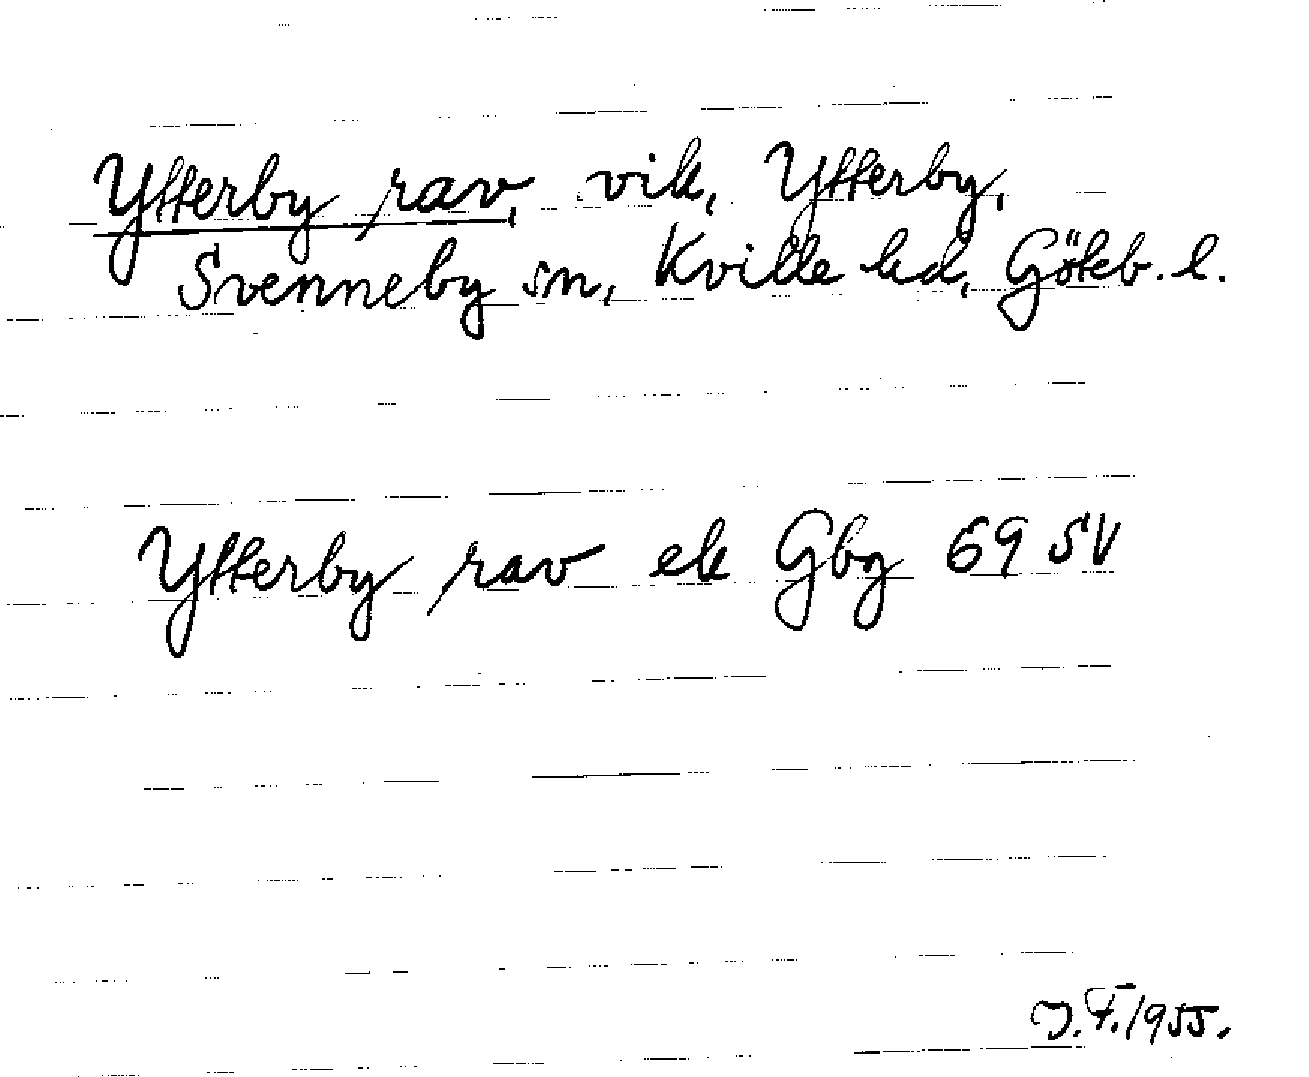 Ytterby rav, vik, Ytterby,
Svenneby sn, Kville hd, Göteb. l.
Ytterby rav ek Gbg 69 SV
J. F. 1955.